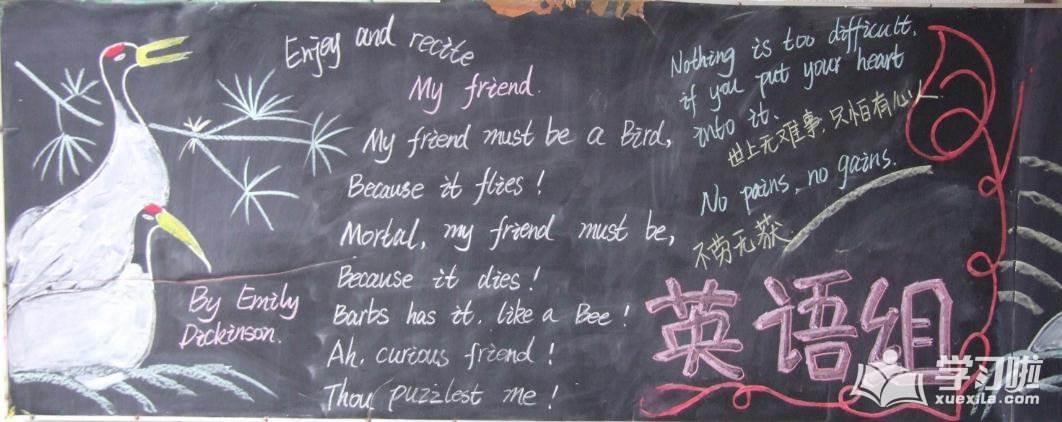 Enjoy and recite
My friend.
My friend must be a Bird,
Because it flies!
Mortal, my friend must be,
Because it dies!
Barbs has it, like a Bee!
Ah, curious friend!
Thou puzzlest me!
By Emily
Dickinson.
Nothing is too difficult,
if you put your heart
into it.
世上无难事,只怕有心人.
No pains, no gains.
不劳无获.
英语组
学习啦
xuexila.com